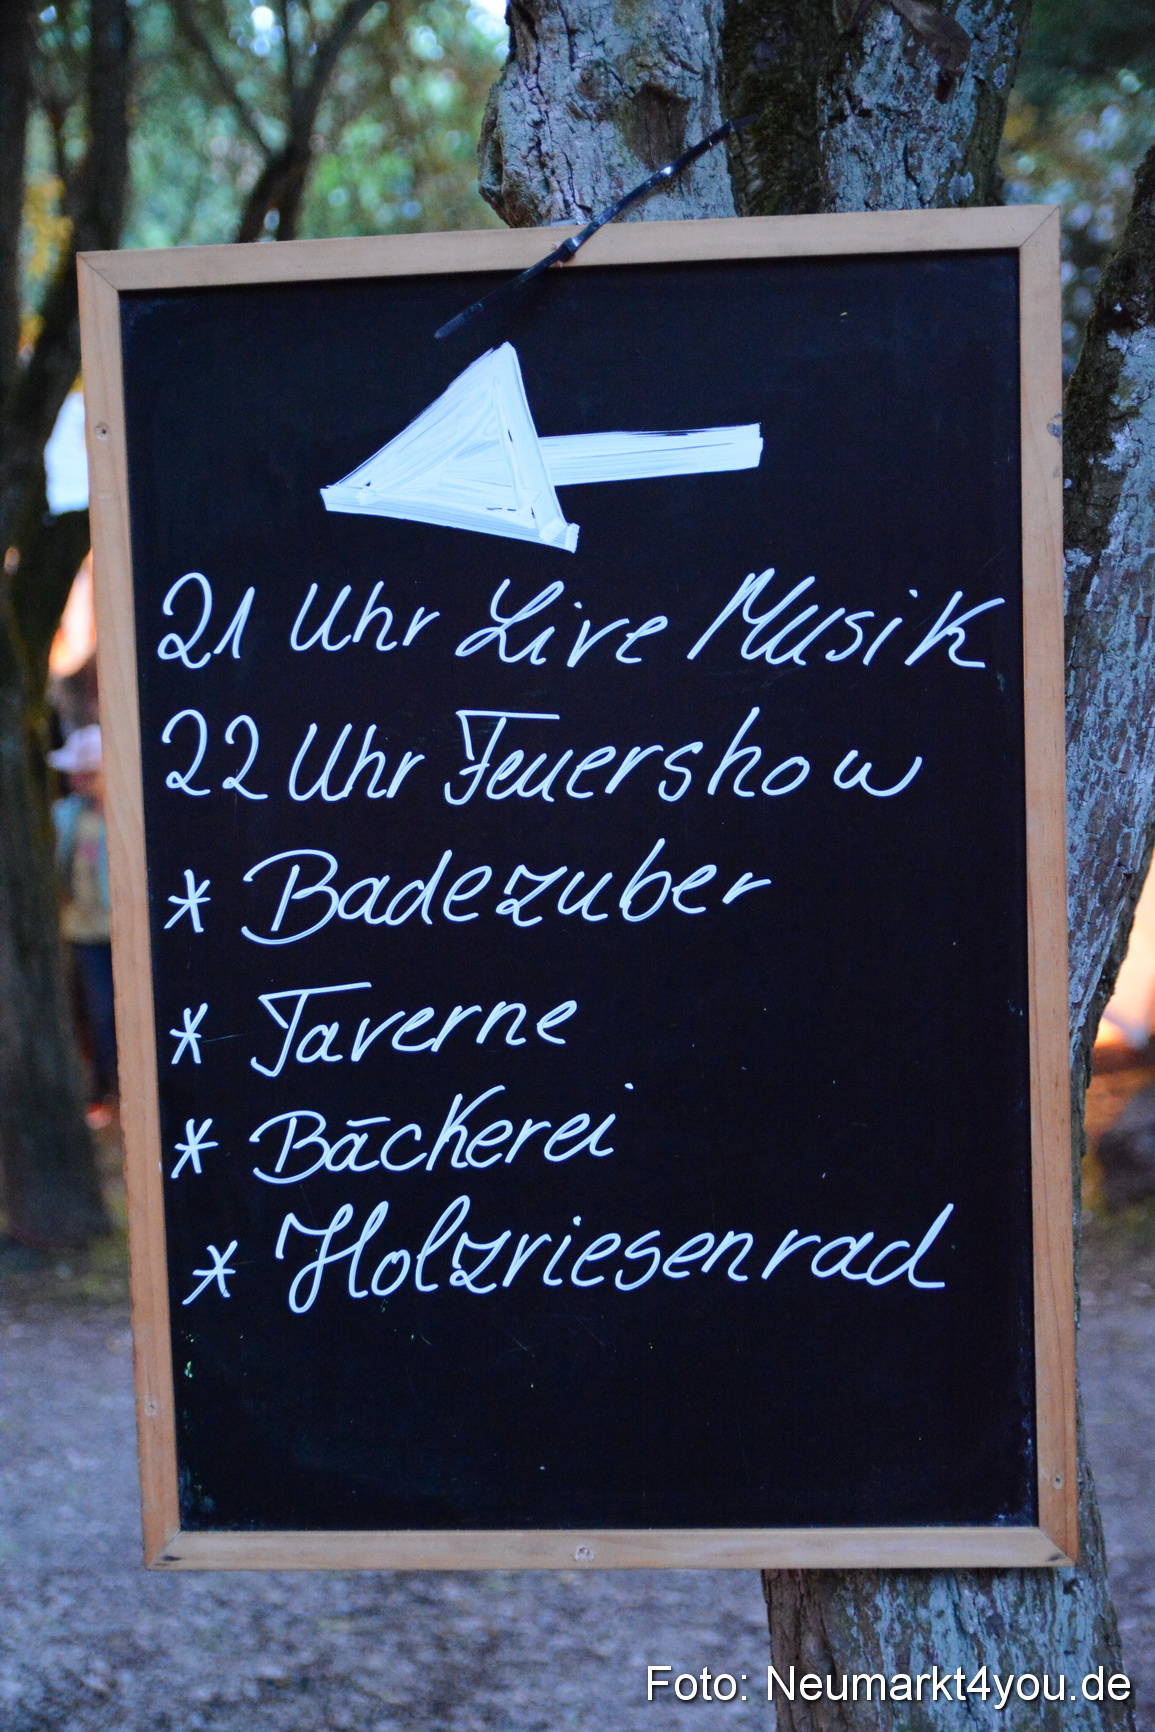 21 Uhr Live Musik
22 Uhr Feuershow
* Badezuber
* Taverne
* Bäckerei
* Holzriesenrad
Foto: Neumarkt4you.de